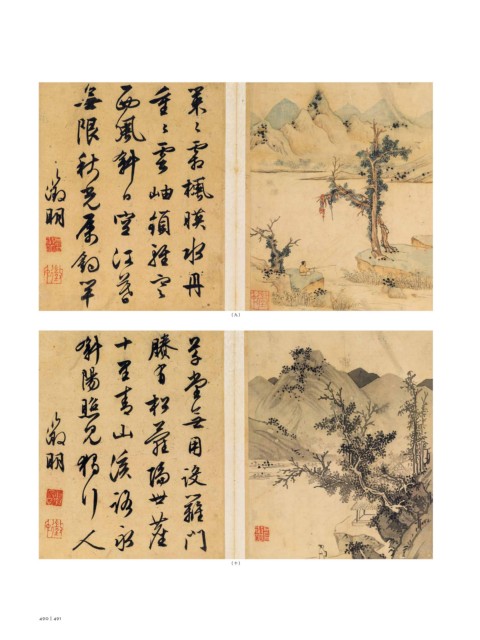 葉〻霜楓暎水丹
重〻雲岫鎖
西風斜日空江暮
無限秋光屬釣竿
徵明
草堂無用設籬門
賸有松蘿隔世塵
十里青山溪路永
斜陽照見獨行人
徵明
400 | 401